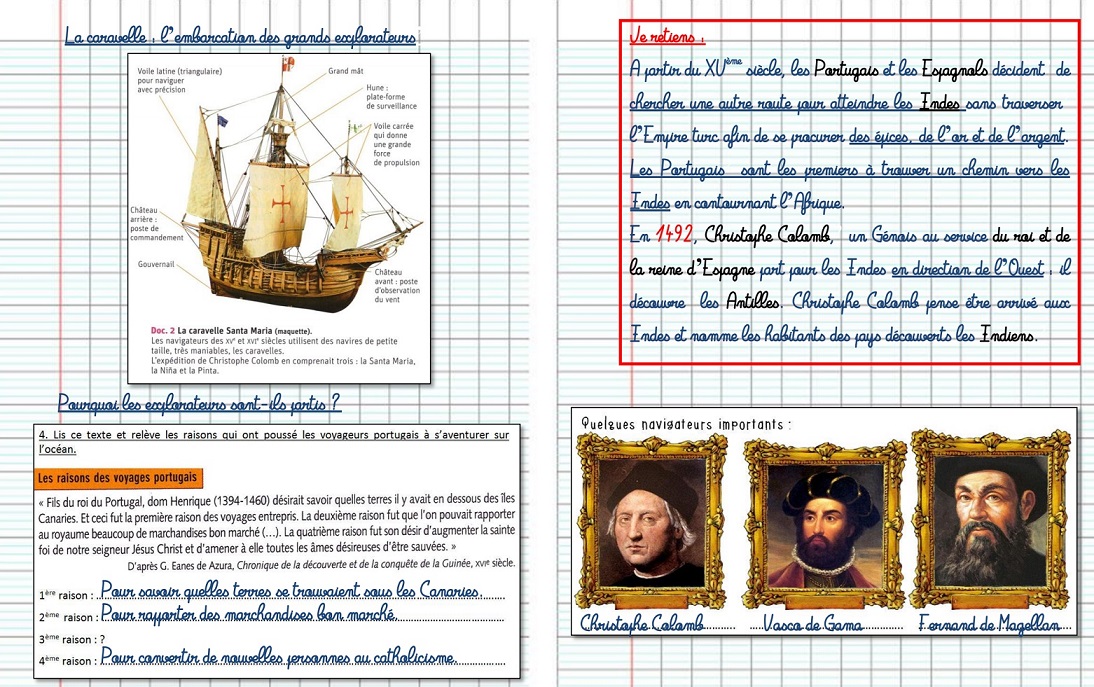 La caravelle : l'embarcation des grands explorateurs
Voile latine (triangulaire)
pour naviguer
avec précision
Grand mât
Hune :
plate-forme
de surveillance
Voile carrée
qui donne
une grande
force
de propulsion
Château
arrière :
poste de
commandement
Gouvernail
Château
avant : poste
d'observation
du vent
Doc. 2 La caravelle Santa Maria (maquette).
Les navigateurs des XVe et XVIe siècles utilisent des navires de petite
taille, très maniables, les caravelles.
L'expédition de Christophe Colomb en comprenait trois : la Santa Maria,
la Niña et la Pinta.
Pourquoi les explorateurs sont-ils partis ?
4. Lis ce texte et relève les raisons qui ont poussé les voyageurs portugais à s'aventurer sur
l'océan.
Les raisons des voyages portugais
« Fils du roi du Portugal, dom Henrique (1394-1460) désirait savoir quelles terres il y avait en dessous des îles
Canaries. Et ceci fut la première raison des voyages entrepris. La deuxième raison fut que l'on pouvait rapporter
au royaume beaucoup de marchandises bon marché (...). La quatrième raison fut son désir d'augmenter la sainte
foi de notre seigneur Jésus Christ et d'amener à elle toutes les âmes désireuses d'être sauvées. »
D'après G. Eanes de Azura, Chronique de la découverte et de la conquête de la Guinée, XVIe siècle.
1ère raison : Pour savoir quelles terres se trouvaient sous les Canaries.
2ème raison : Pour rapporter des marchandises bon marché.
3ème raison : ?
4ème raison : Pour convertir de nouvelles personnes au catholicisme.
Je retiens :
A partir du XVème siècle, les Portugais et les Espagnols décident de
chercher une autre route pour atteindre les Indes sans traverser
l'Empire turc afin de se procurer des épices, de l'or et de l'argent.
Les Portugais sont les premiers à trouver un chemin vers les
Indes en contournant l'Afrique.
En 1492, Christophe Colomb, un Génois au service du roi et de
la reine d'Espagne part pour les Indes en direction de l'Ouest : il
découvre les Antilles. Christophe Colomb pense être arrivé aux
Indes et nomme les habitants des pays découverts les Indiens.
Quelques navigateurs importants :
Christophe Colomb
Vasco de Gama
Fernand de Magellan